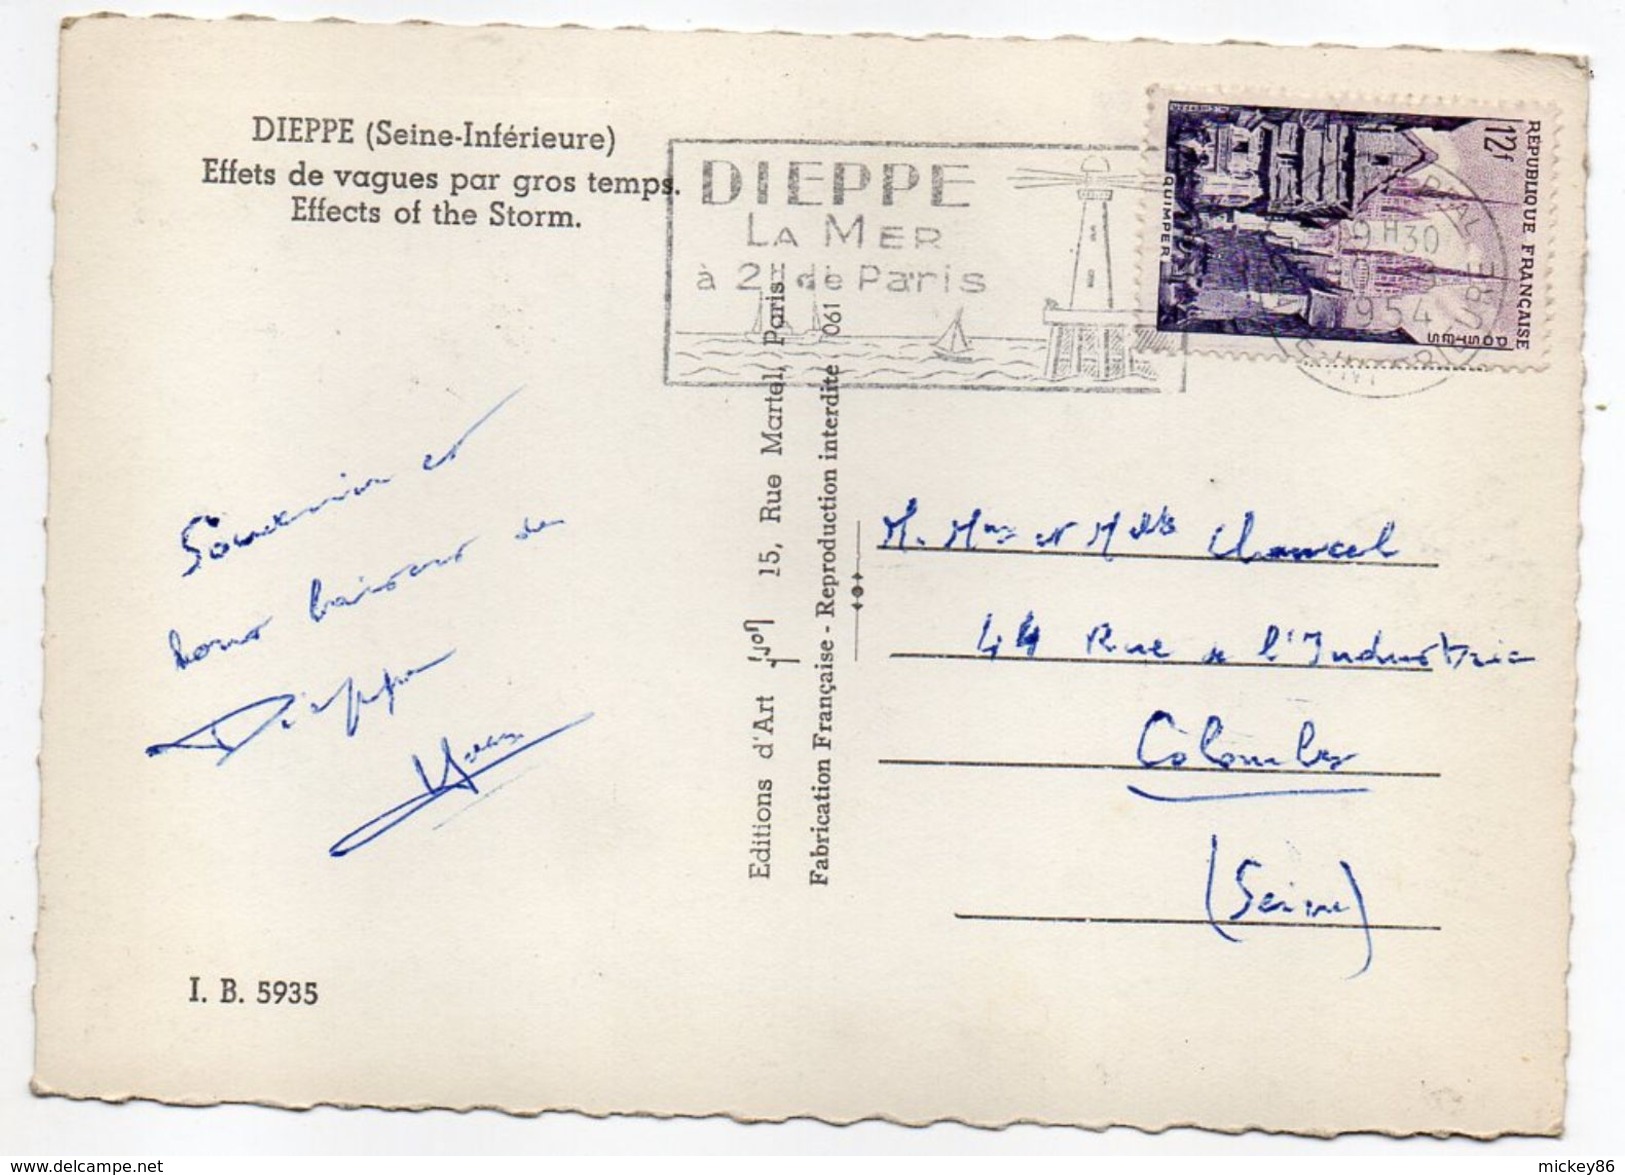 DIEPPE (Seine-Inférieure)
Effets de vagues par gros temps.
Effects of the Storm.
DIEPPE
LA MER
à 2H de Paris
RÉPUBLIQUE FRANÇAISE
12f
POSTES
QUIMPER
9H30
1954
Souvenir et
bons baisers de
Dieppe
Editions d'Art Yvon 15, Rue Martel, Paris
Fabrication Française - Reproduction interdite 061
M. Mme et Melle Chancel
44 Rue de l'Industrie
Colombes
(Seine)
I. B. 5935
mickey86
www.delcampe.net